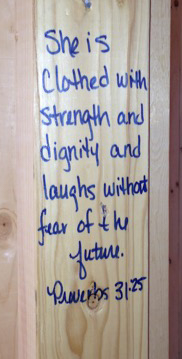 She is
Clothed with
strength and
dignity and
laughs without
fear of the
future.
Proverbs 31:25